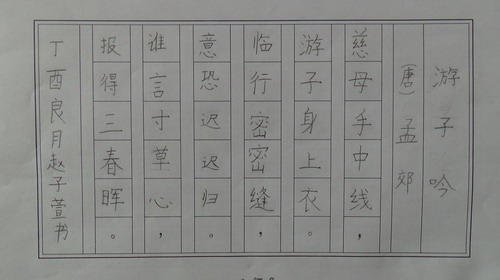 游子吟
（唐）孟郊
慈母手中线，
游子身上衣。
临行密密缝，
意恐迟迟归。
谁言寸草心，
报得三春晖。
丁酉良月赵子萱书